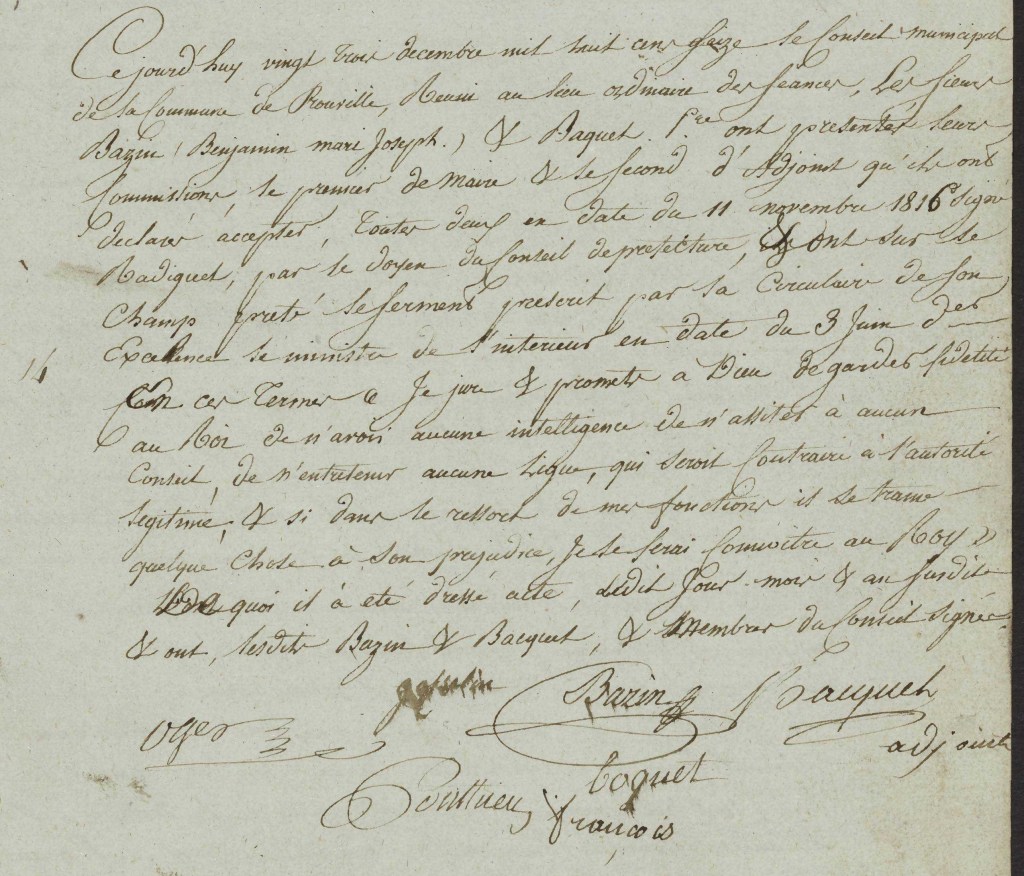 Cejourd'huy vingt trois decembre mil huit cens seize le Conseil municipal
de la Commune de Rouville, Reuni au lieu ordinaire des seances, Les sieurs
Bazin (Benjamin mari Joseph.) & Baquet Pre ont presentés leurs
Commissions, le premier de maire & le second d'Adjoint qu'ils ont
declarés accepter, Toutes deux en date du 11 novembre 1816 signé
Radiquet, par le doyen du Conseil de prefecture, & ont sur le
Champ preté le serment prescrit par la Circulaire de son
Excelence le ministre de l'interieur en date du 3 Juin der
14
En ces Termes « Je jure & promets a Dieu de garder fidelité
au Roi de n'avoir aucune intelligence de n'assiter à aucun
Conseil, de n'entretenir aucune Ligue, qui seroit Contraire à l'autorité
legitime, & si dans le ressort de mes fonctions il se trame
quelque Chose à son prejudice, Je le ferai Connoitre au Roy »
De quoi il à été dressé acte, Ledit Jour mois & an susdit
& ont, lesdits Bazin & Bacquet, & Membres du Conseil signée
Bazin Bacquet
Oger adjoint
Coquet
françois